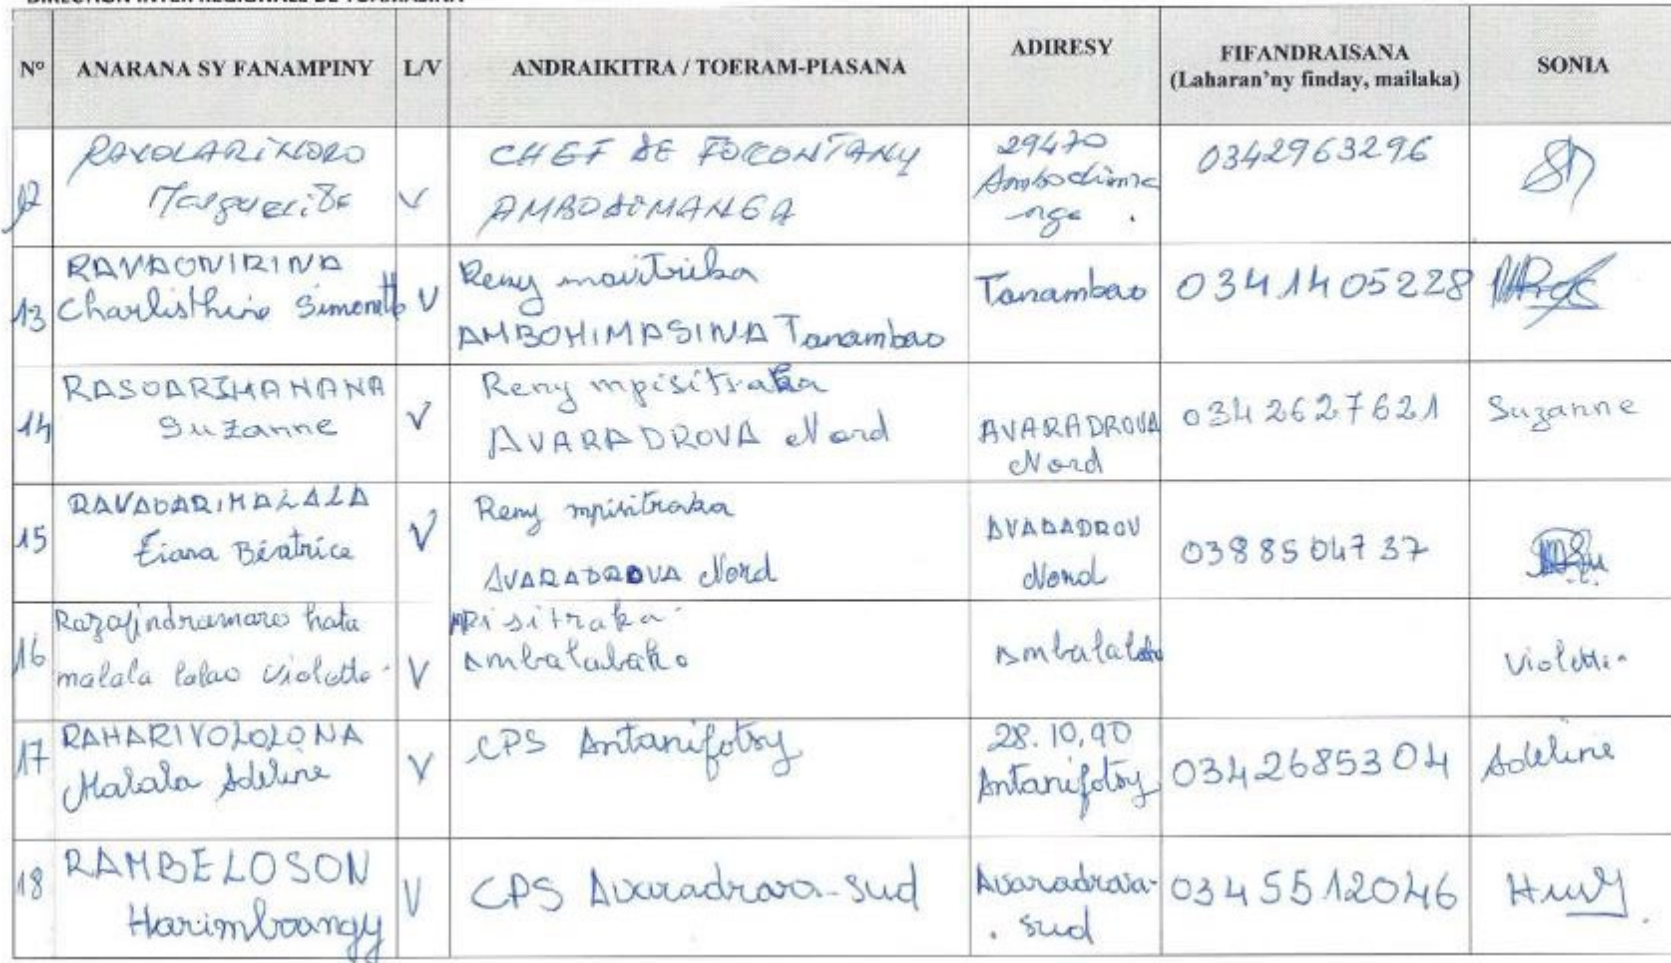 N° ANARANA SY FANAMPINY L/V ANDRAIKITRA / TOERAM-PIASANA ADIRESY FIFANDRAISANA (Laharan'ny finday, mailaka) SONIA
12 RAVOLARINORO Marguerite V CHEF DE FOKONTANY AMBODIMANGA 29470 Ambodimanga 0342963296
13 RAVAONIRINA Charlisthine Simonette V Reny mavitrika AMBOHIMASINA Tanambao Tanambao 0341405228
14 RASOARIMANANA Suzanne V Reny mpisitraka AVARADROVA Nord AVARADROVA Nord 0342627621 Suzanne
15 RAVAOARIMALALA Eiana Béatrice V Reny mpisitraka AVARADROVA Nord AVARADROV Nord 0388504737
16 Razafindramaro hata malala lalao Violette V mpisitraka Ambalabako Violette
17 RAHARIVOLOLONA Malala Adeline V CPS Antanifotsy 28.10,90 Antanifotsy 0342685304 Adeline
18 RAMBELOSON Harimboangy V CPS Avaradrova-Sud Avaradrova-Sud 0345512046